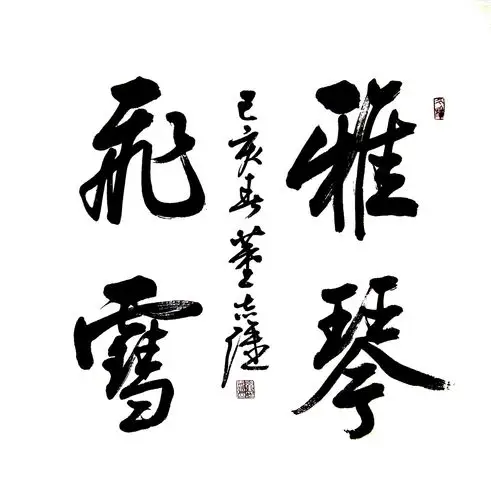 雅琴
飛雪
己亥春董志隆